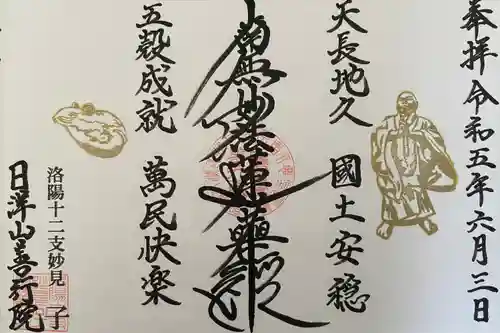 奉拝 令和五年六月三日
天長地久 國土安穏
南無妙法蓮華経
五穀成就 萬民快楽
洛陽十二支妙見 子
日洋山善行院